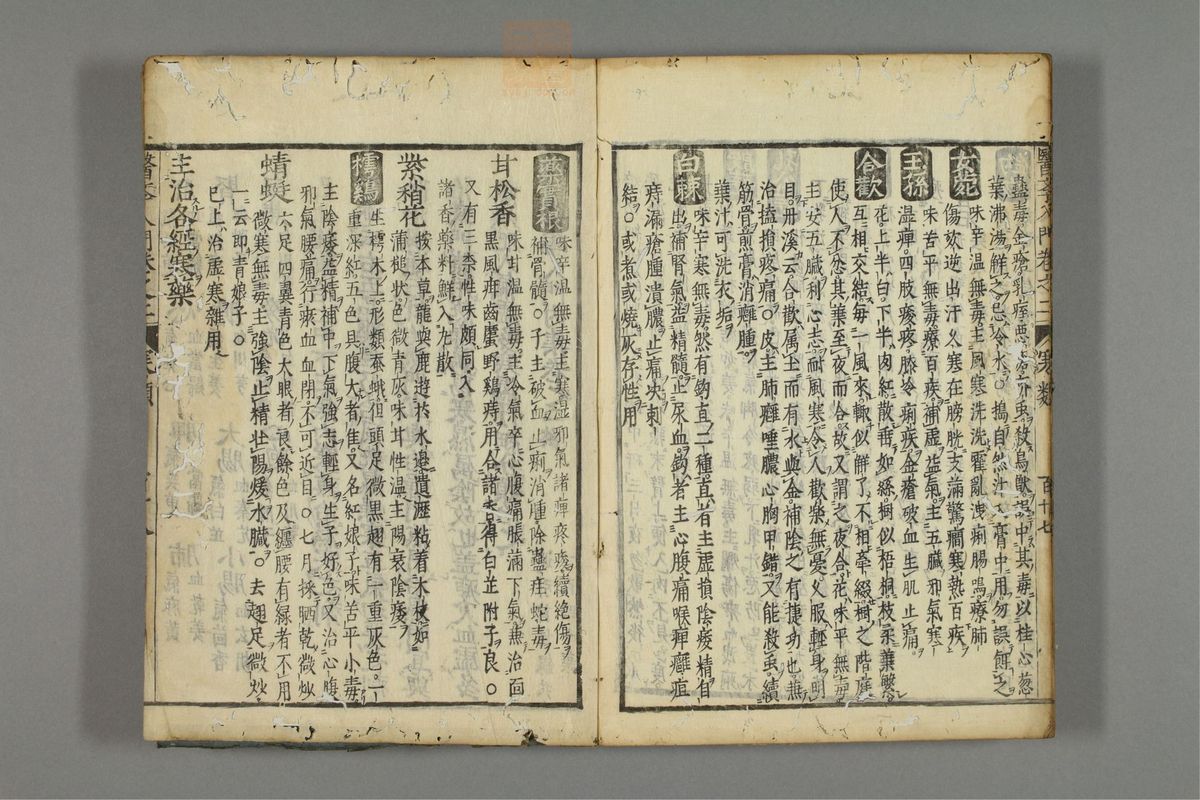 醫學入門卷之二 寒類 百十七
蠱毒金瘡乳痓惡瘡疥虫殺鳥獸誤中其毒以桂心葱
葉沸湯解之忌冷水○搗自然汁入膏中用勿誤餌之
女菀
味辛温無毒主風寒洗洗霍亂洩痢腸鳴療肺
傷欬逆出汗久寒在膀胱支滿驚癇寒熱百疾
王孫
味苦平無毒療百疾補虛益氣主五臟邪氣寒
濕痺四肢痠疼膝冷痢疾金瘡破血生肌止痛
合歡
花上半白下半肉紅散垂如絲樹似梧桐枝柔葉繁
互相交結每一風來輒似解了不相牽綴樹之階庭
使人不忿其葉至夜而合故又謂之夜合花味平無毒
主安五臟利心志耐風寒令人歡樂無憂久服輕身明
目丹溪云合歡属土而有水與金補陰之有捷功也兼
治搕損疼痛○皮主肺癰唾膿心胸甲錯又能殺虫續
筋骨煎膏消癰腫
葉汁可洗衣垢
白棘
味辛寒無毒然有鈎直二種直者主虛損陰痿精自
出補腎氣益精髓止尿血鈎者主心腹痛喉痺癰疽
痔漏瘡腫潰膿止痛决刺
結○或煮或燒灰存性用
味辛温無毒主寒湿邪氣諸痺疼痠續絶傷
補骨髓○子主破血止痢消腫除蠱疰蛇毒
甘松香
味甘温無毒主冷氣卒心腹痛脹滿下氣兼治面
黒風疳齒䘌野鷄痔用合諸香得白並附子良○
又有三柰性味頗同入
諸香藥料鮮入丸散
紫稍花
按本草龍與鹿遊於水邊遺瀝粘着木枝如
蒲槌状色微青灰味甘性温主陽衰陰痿
樗鷄
生樗木上形類蚕蛾但頭足微黒翅有一重灰色一
重深紅五色具腹大者佳又名紅娘子味苦平小毒
主陰痿益精補中下氣強志輕身生子好色又治心腹
邪氣腰痛行瘀血血閉不可近目○七月採晒乾微炒
蜻蜓
六足四翼青色大眼者良餘色及纏腰有緑者不用
微寒無毒主強陰止精壯陽煖水臟○去翅足微炒
一云即青娘子○
已上治虛寒雜用
主治各經寒藥